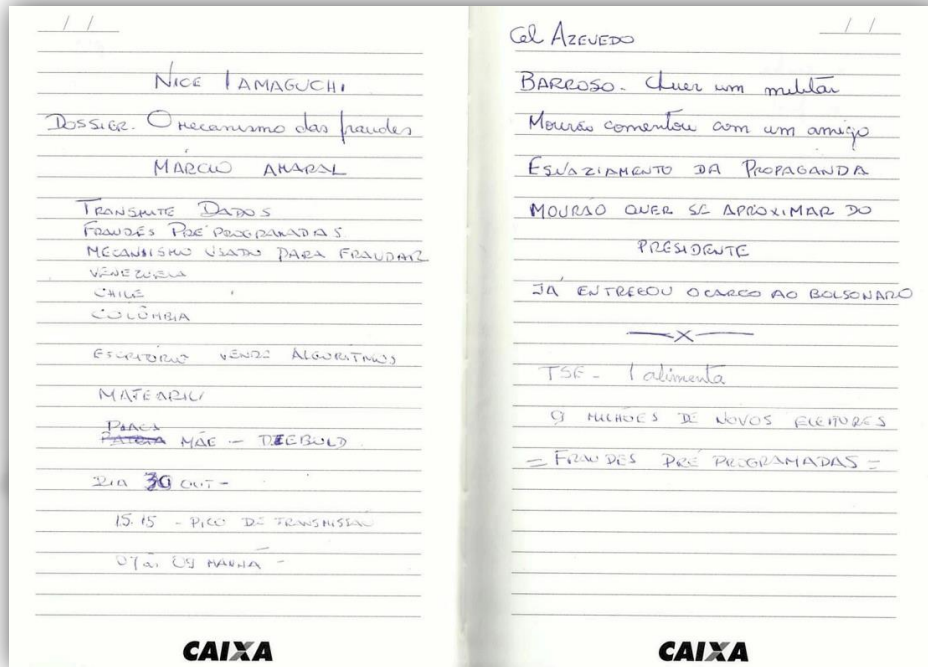 / /
NICE IAMAGUCHI
DOSSIER. O mecanismo das fraudes
MÁRCIO AMARAL
TRANSMITE DADOS
FRAUDES PRÉ PROGRAMADAS
MECANISMO USADO PARA FRAUDAR
VENEZUELA
CHILE
COLÔMBIA
ESCRITÓRIO VENDE ALGORITMOS
PLACA
MÃE - DIEBOLD
DIA 30 OUT -
15.15 - PICO DE TRANSMISSÃO
07 às 09 MANHÃ -
CAIXA
/ /
Cel AZEVEDO
BARROSO. Quer um militar
Mourão comentou com um amigo
ESVAZIAMENTO DA PROPAGANDA
MOURÃO QUER SE APROXIMAR DO
PRESIDENTE
JÁ ENTREGOU O CARGO AO BOLSONARO
X
TSE - 1 alimenta
9 MILHÕES DE NOVOS ELEITORES
= FRAUDES PRÉ PROGRAMADAS =
CAIXA